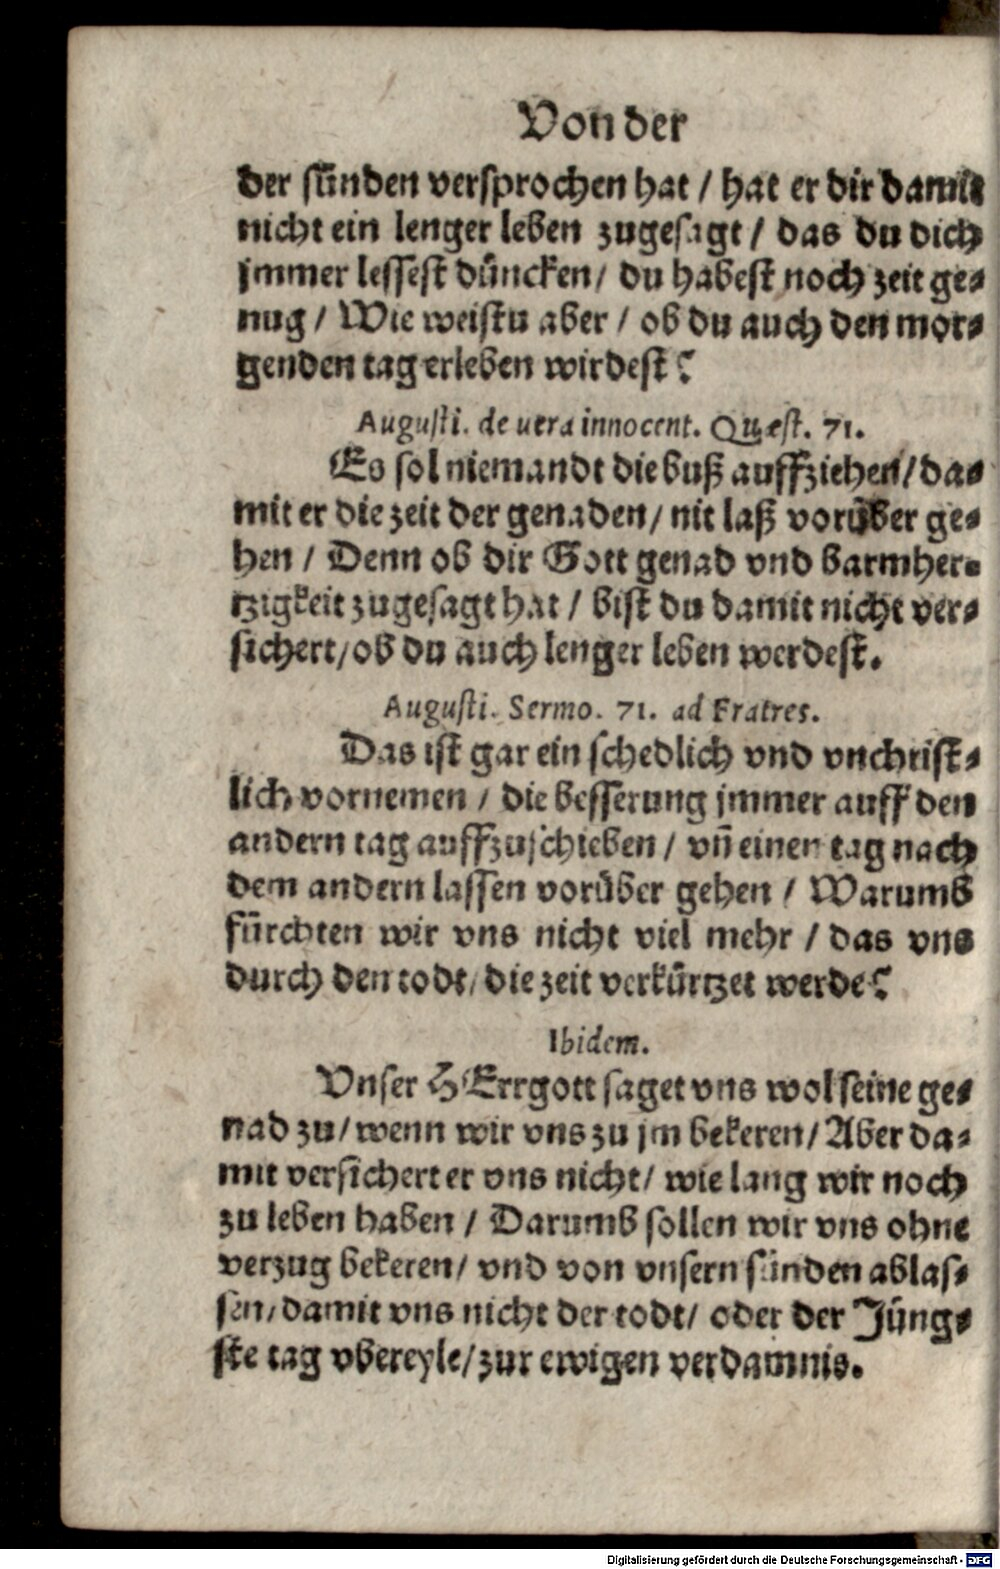 Von der
der sünden versprochen hat / hat er dir damit
nicht ein lenger leben zugesagt / das du dich
jmmer lessest düncken / du habest noch zeit ge⸗
nug / Wie weistu aber / ob du auch den mor⸗
genden tag erleben wirdest?
Augusti. de uera innocent. Quæst. 71.
Es sol niemandt die buß auffziehen / da⸗
mit er die zeit der genaden / nit laß vorüber ge⸗
hen / Denn ob dir Gott genad vnd barmher⸗
tzigkeit zugesagt hat / bist du damit nicht ver⸗
sichert / ob du auch lenger leben werdest.
Augusti. Sermo. 71. ad Fratres.
Das ist gar ein schedlich vnd vnchrist⸗
lich vornemen / die besserung jmmer auff den
andern tag auffzuschieben / vñ einen tag nach
dem andern lassen vorüber gehen / Warumb
fürchten wir vns nicht viel mehr / das vns
durch den todt / die zeit verkürtzet werde?
Ibidem.
Vnser HErrgott saget vns wol seine ge⸗
nad zu / wenn wir vns zu jm bekeren / Aber da⸗
mit versichert er vns nicht / wie lang wir noch
zu leben haben / Darumb sollen wir vns ohne
verzug bekeren / vnd von vnsern sünden ablas⸗
sen / damit vns nicht der todt / oder der Jüng⸗
ste tag vbereyle / zur ewigen verdamnis.
Digitalisierung gefördert durch die Deutsche Forschungsgemeinschaft - DFG